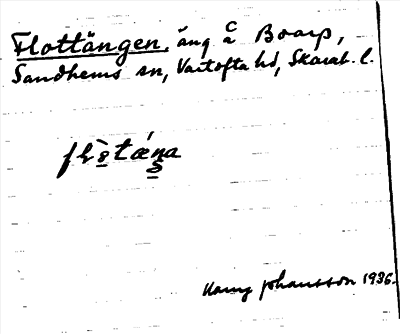 Flottängen, äng å Boarp,
Sandhems sn, Vartofta hd, Skarab. l.
Harry Johansson 1936.